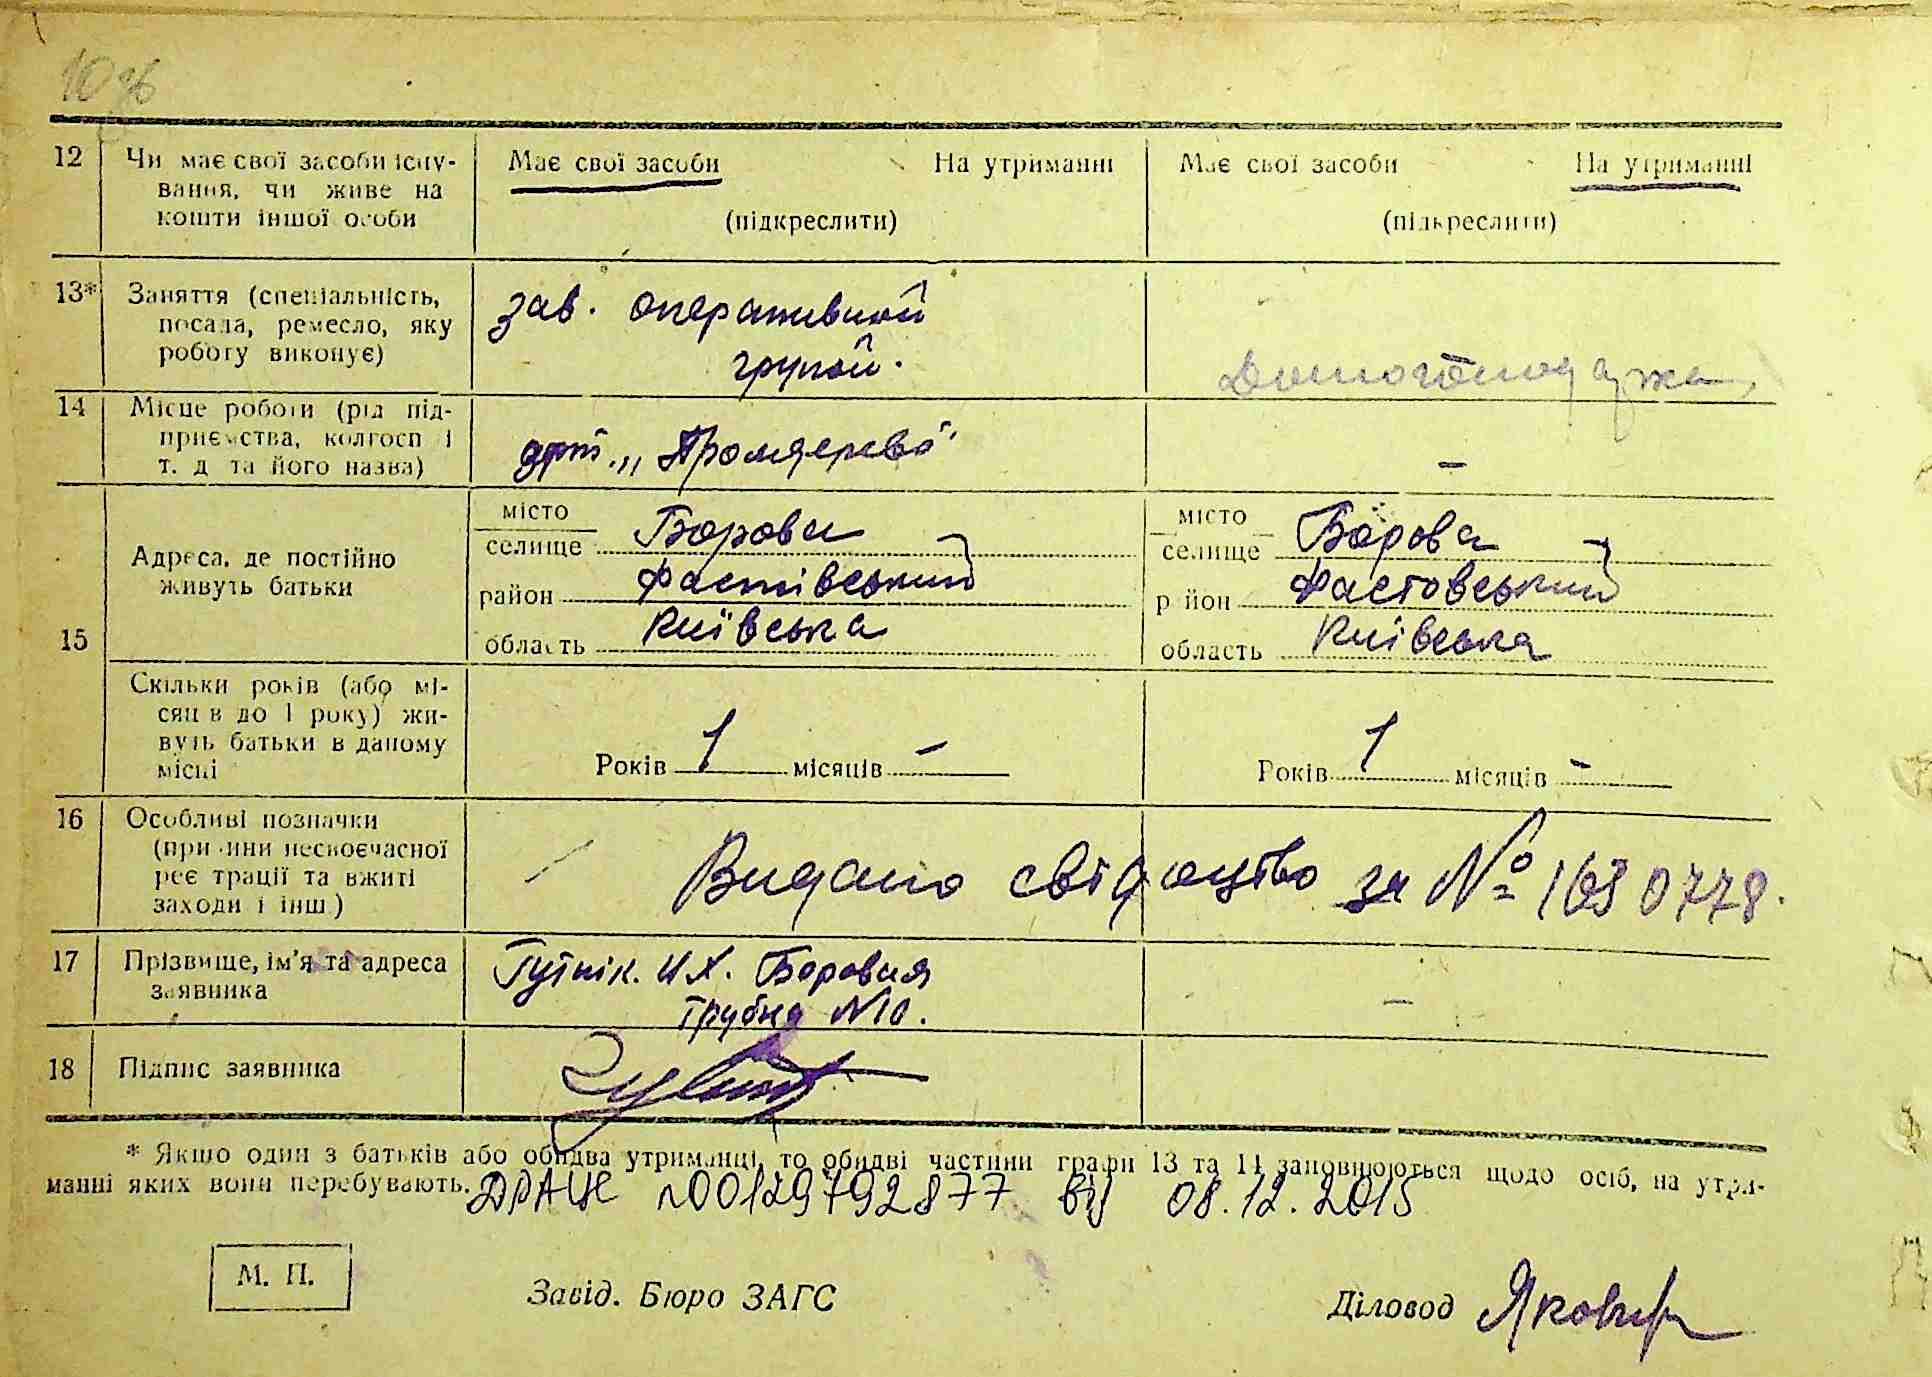 12 Чи має свої засоби існу- Має свої засоби На утриманні Має свої засоби На утриманні
вання, чи живе на
кошти іншої особи (підкреслити) (підкреслити)
13* Заняття (спеціальність, зав. оперативной
посада, ремесло, яку
роботу виконує) групой. Домогосподарка
14 Місце роботи (рід під-
приємства, колгосп і арт. „Промдерево" –
т. д та його назва)
місто Борова місто Борова
селище селище
Адреса, де постійно
живуть батьки район Фастівський р йон Фастовський
15 область Київська область Київська
Скільки років (або мі-
сяців до 1 року) жи-
вуть батьки в даному
місці Років 1 місяців – Років 1 місяців –
16 Особливі позначки
(причини несвоєчасної
реєстрації та вжиті Видано свідоцтво за № 1630778.
заходи і інш)
17 Прізвище, ім'я та адреса Гутнік. И Х. Боровая
заявника Трубна №10. –
18 Підпис заявника
* Якщо один з батьків або обидва утриманці, то обидві частини графи 13 та 14 заповнюються щодо осіб, на утри-
манні яких вони перебувають. ДРАЦС №00129792877 від 08.12.2015
М. П. Завід. Бюро ЗАГС Діловод